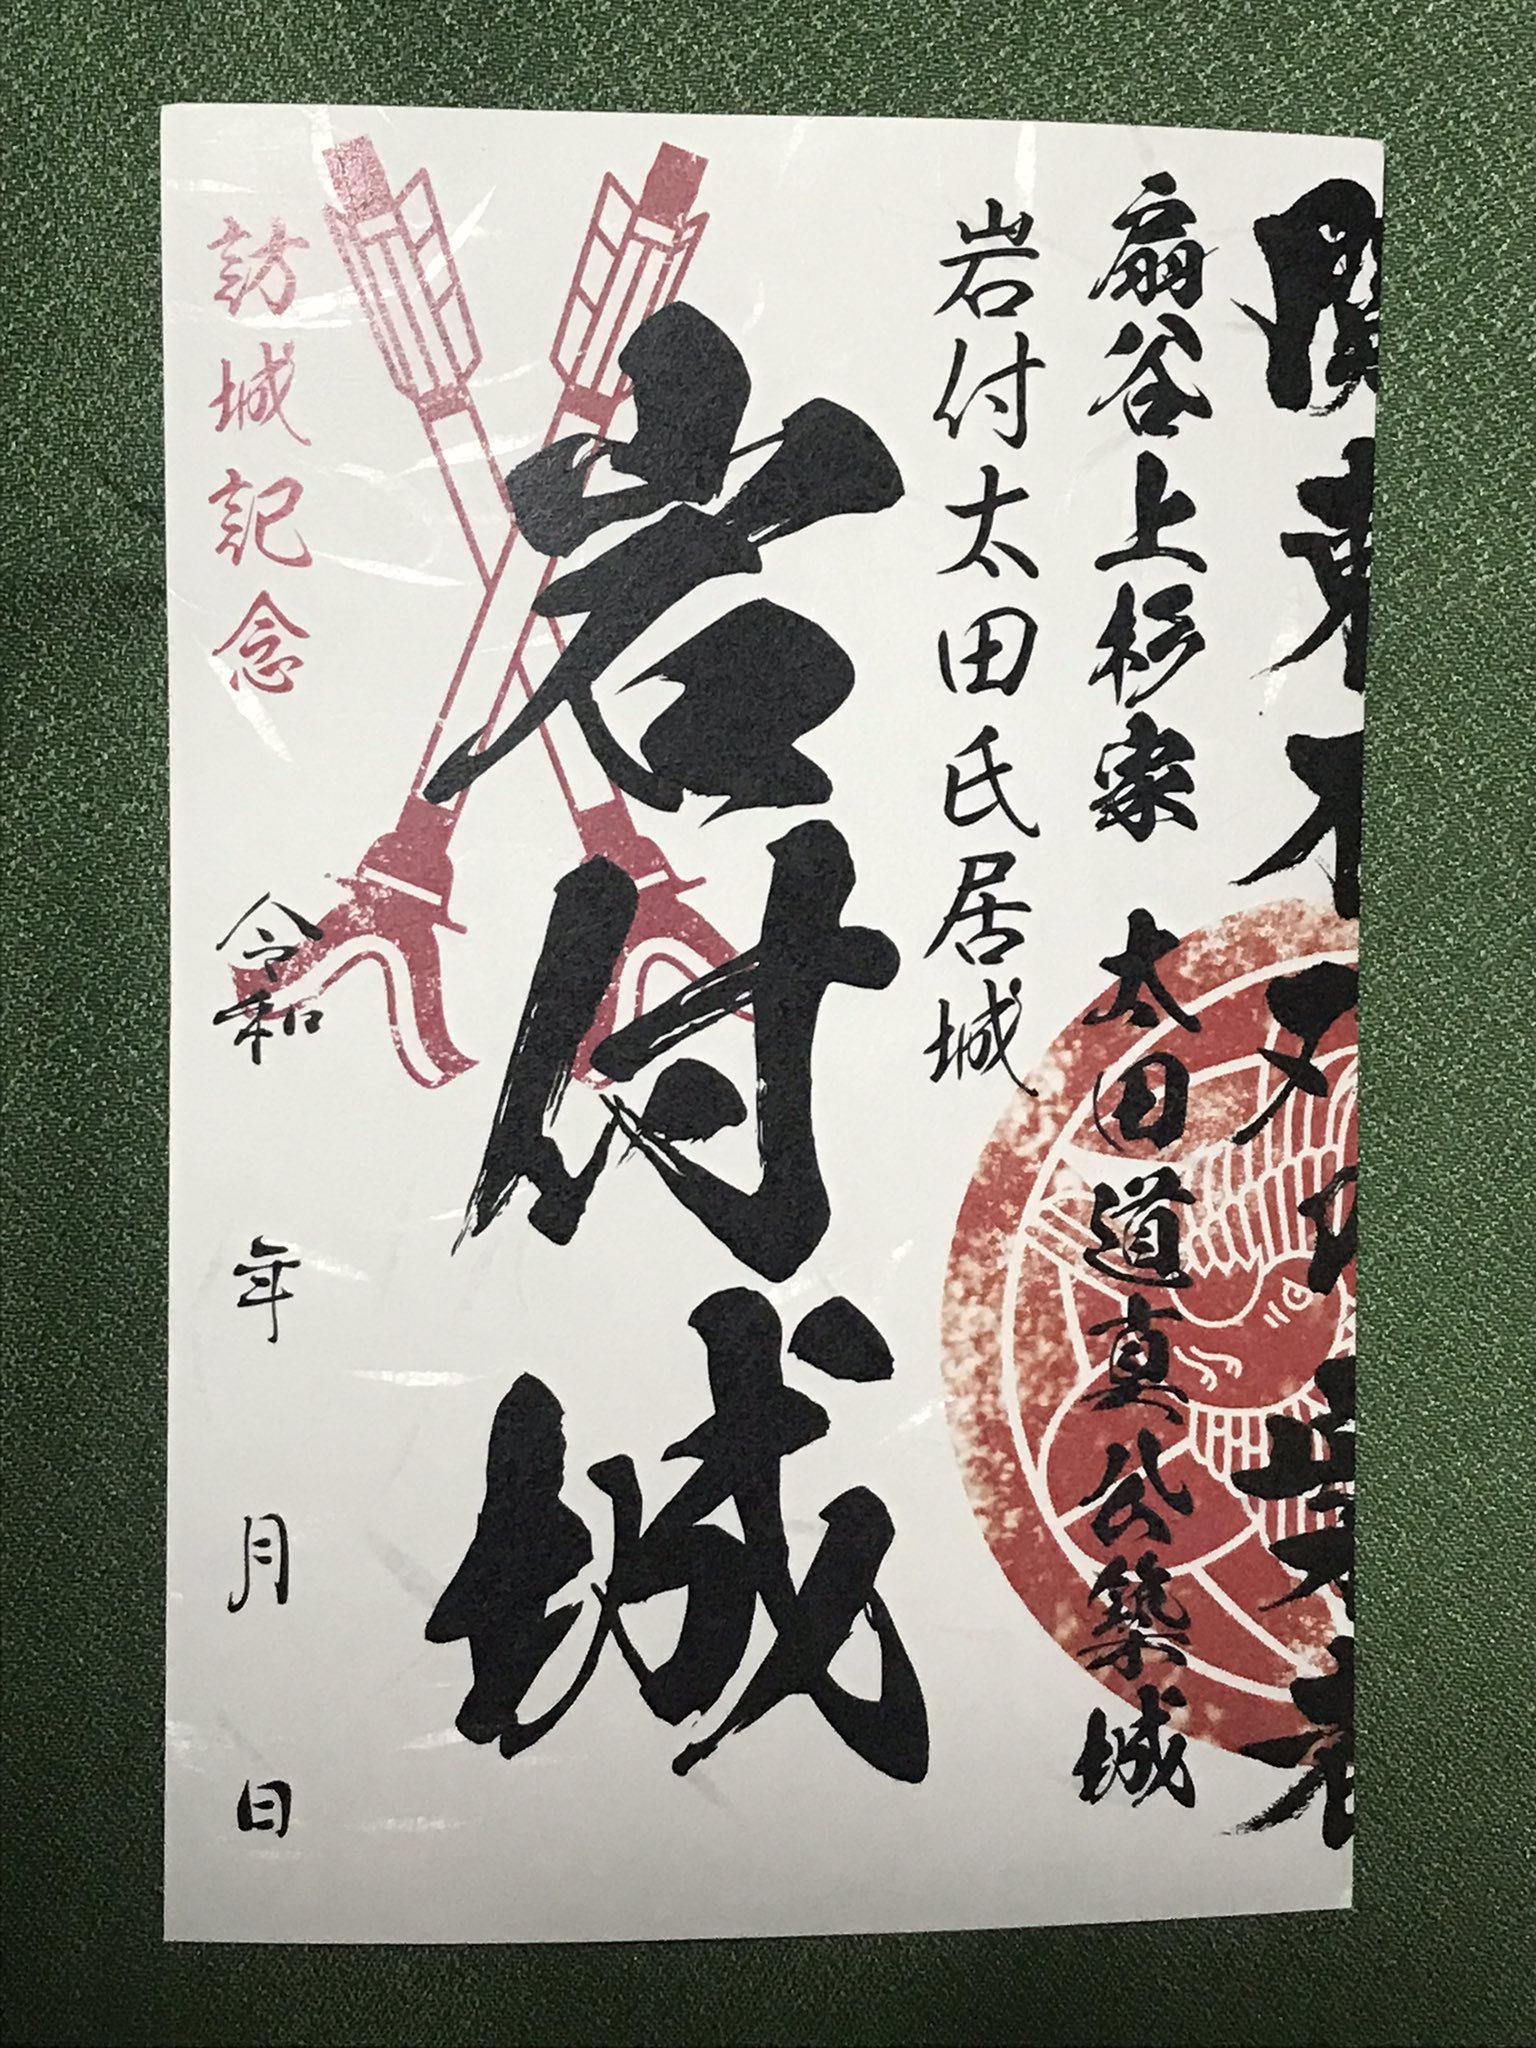 関東不双の案者
扇谷上杉家　太田道真公築城
岩付太田氏居城
岩付城
訪城記念
令和　年　月　日